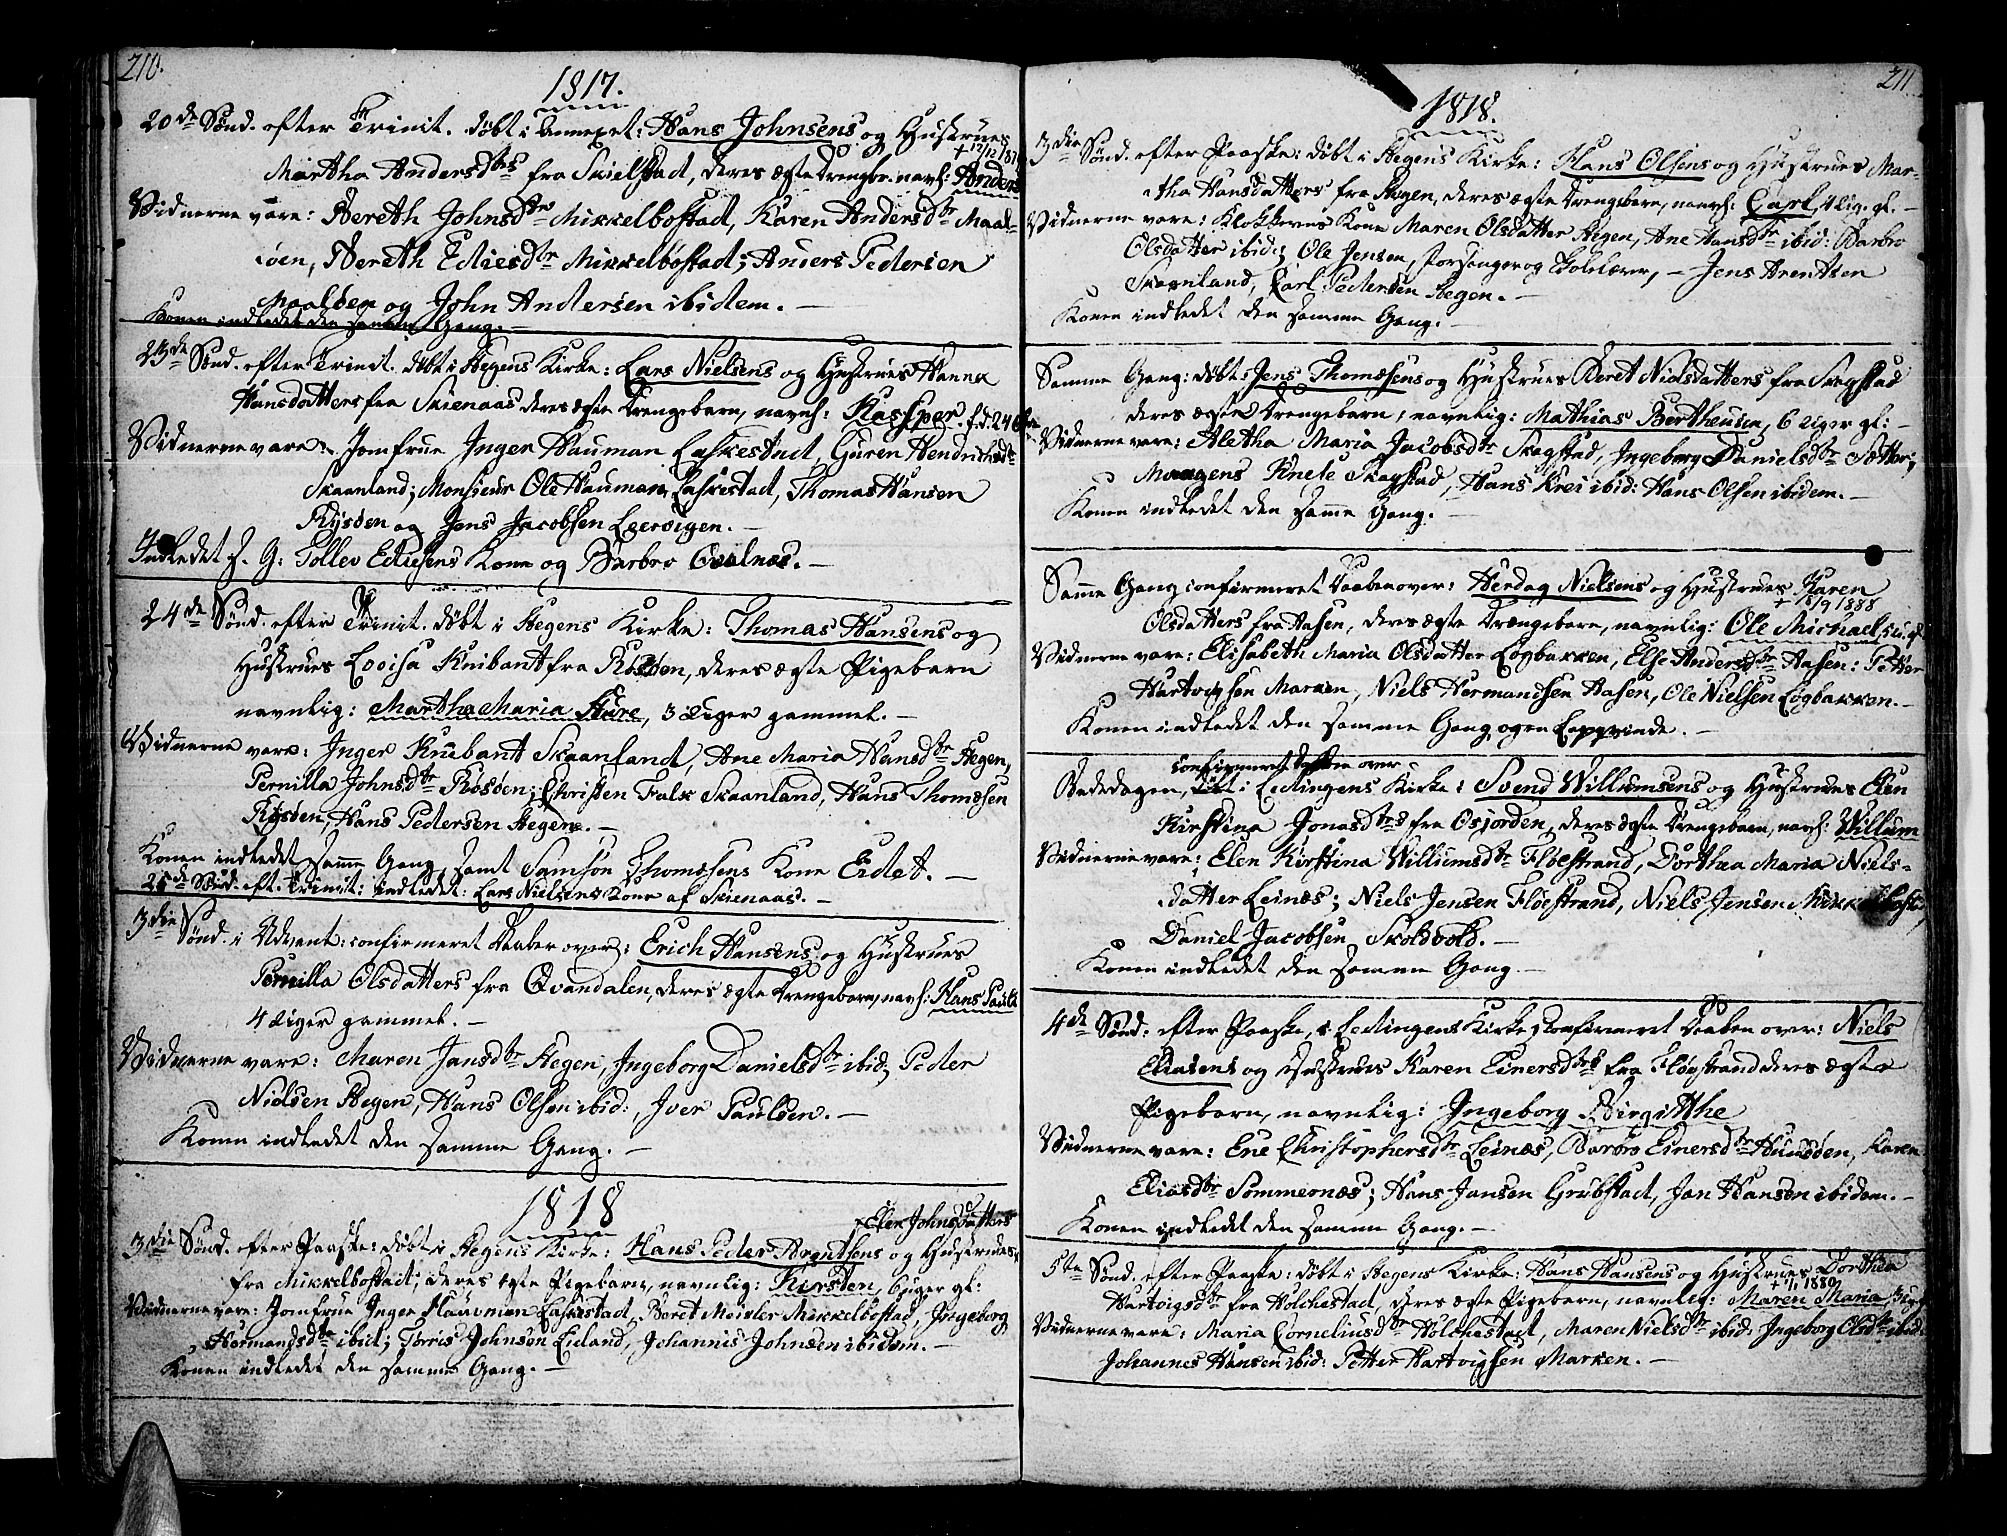 210.
1817.
20de Sønd. efter Trinit. døbt i Annexet: Hans Johnsens og Hustrues
Martha Andersdtrs fra Skielstad, deres ægte Drengebr. navnl: Anders
Vidnerne vare: Bereth Johnsdtr Mikkelbostad, Karen Andersdtr Maal-
søen, Bereth Ediesdtr Mikkelbøstad; Anders Pedersen
Maalsøen og John Andersen ibidem. —
Konen indledet den samme Gang. —
23de Sønd. efter Trinit. døbt i Aegens Kirke: Lars Nielsens og Hustrues Hanna
Hansdatters fra Skienaas deres ægte Drengebarn, navnl: Kasper. f.d. 24
Vidnerne vare: Jomfrue Inger Hauman Laskestad, Guren Hendrichsdtr
Skaanland; Monsieur Ole Hauman Laskestad, Thomas Hansen
Rysøen og Jens Jacobsen Leervigen. —
Indledet s. G: Tollev Ediesens Kone og Barbro Qvalnæs. —
24de Sønd. efter Trinit. døbt i Aegens Kirke: Thomas Hansens og
Hustrues Lovisa Knibant fra Røsøen, deres ægte Pigebarn
navnlig: Martha Maria Sture, 3 Uger gammel. —
Vidnerne vare: Inger Knibant Skaanland, Ane Maria Hansdtr Aegen,
Pernilla Johnsdtr Røsøen; Christen Falk Skaanland, Hans Thomesen
Rysøen, Hans Pedersen Aegen. —
Konen indledet samme Gang, samt Samson Thomesens Kone Eidet. —
25de Sønd. eft. Trinit: indledet: Lars Nielsens Kone af Skienaas. —
3die Sønd. i Advent: confirmeret Daaben over: Erich Hansens og Hustrues
Pernilla Olsdatters fra Qvandalen, deres ægte Drengebarn, navnl: Hans Paul
4 Uger gammel. —
Vidnerne vare: Maren Jansdtr Aegen, Ingeborg Danielsdtr ibid; Peder
Nielsen Aegen, Hans Olsen ibid:, Iver Paulsen. —
Konen indledet den samme Gang. —
1818
Elen Johnsdatters
3die Sønd. efter Paaske: døbt i Aegens Kirke: Hans Peder Arentsens og Hustrues
fra Mikkelbostad; deres ægte Pigebarn, navnlig: Kirsten, 6 uger gl.
Vidnerne vare: Jomfrue Inger Hauman Laskestad, Beret Meisler Mikkelbostad, Ingeborg
Hermansdtr ibid; Torris Johnsen Eieland, Johannis Johnsen ibidem. —
Konen indledet den samme Gang. —
211
1818.
3die Sønd. efter Paaske: døbt i Aegens Kirke: Hans Olsens og Hustrues Mar-
tha Hansdatters fra Aegen, deres ægte Drengebarn, navnl: Carl, 4 Ug. gl. —
Vidnerne vare: Klokkerens Kone Maren Olsdatter Aegen, Ane Hansdtr ibid: Barbro
Olsdatter ibid; Ole Jensen, Forsanger og Skolelærer, — Jens Arentsen
Skaanland, Carl Pedersen Aegen. —
Konen indledet den samme Gang. —
Samme Gang: døbt: Jens Thomesens og Hustrues Beret Nielsdatters fra Skagstad
deres ægte Drengebarn, navnlig: Mathias Bertheusen, 6 Uger gl: —
Vidnerne vare: Aletha Maria Jacobsdtr Skagstad, Ingeborg Danielsdtr Sætter;
Mogens Knele Skagstad, Hans Krei ibid: Hans Olsen ibidem. —
Konen indledet den samme Gang. —
Samme Gang confirmeret Daaben over: Herdag Nielsens og Hustrues Karen
+ 18/9 1888
Olsdatters fra Aasen, deres ægte Drengebarn, navnlig: Ole Michael, 5 u. gl.
Vidnerne vare: Elisabeth Maria Olsdatter Løgbakken, Else Andersdtr Aasen: Petter
Hartvigsen Marken, Niels Hermandsen Aasen, Ole Nielsen Løgbakken. —
Konen indledet den samme Gang, og en Lappqvinde. —
confirmeret Daaben over
Bededagen, i Lødingens Kirke: Svend Willumsens og Hustrues Elen
Kirstina Jonasdtrs fra Osjorden, deres ægte Drengebarn, navnl: Willum
Vidnerne vare: Elen Kirstina Willumsdtr Fløestrand, Dorthea Maria Niels-
datter Leinæs; Niels Jensen Fløestrand, Niels Jensen Mikkelbost.,
Daniel Jacobsen Skoldvold. —
Konen indledet den samme Gang. —
4de Sønd. efter Paaske, i Lødingens Kirke; confirmeret Daaben over: Niels
Eliasens og Hustrues Karen Einersdtrs fra Fløystrand deres ægte
Pigebarn, navnlig: Ingeborg Birgitthe
Vidnerne vare: Ene Christophersdtr Leinæs, Barbro Einersdtr Hunsøen, Karen
Eliasdtr Sommernæs; Hans Jansen Grubstad, Jan Hansen ibidem. —
Konen indledet den samme Gang. —
5te Sønd. efter Paaske: døbt i Aegens Kirke: Hans Hansens og Hustrues Dorthea
+ 1/1 1880
Hartvigsdtr fra Holchestad, deres ægte Pigebarn, navnlig: Maren Maria, 3 ug
Vidnerne vare: Maria Corneliusdtr Holchestad, Maren Nielsdtr ibid: Ingeborg Olsdtr ibid:
Johannes Hansen ibid: Petter Hartvigsen Marken. —